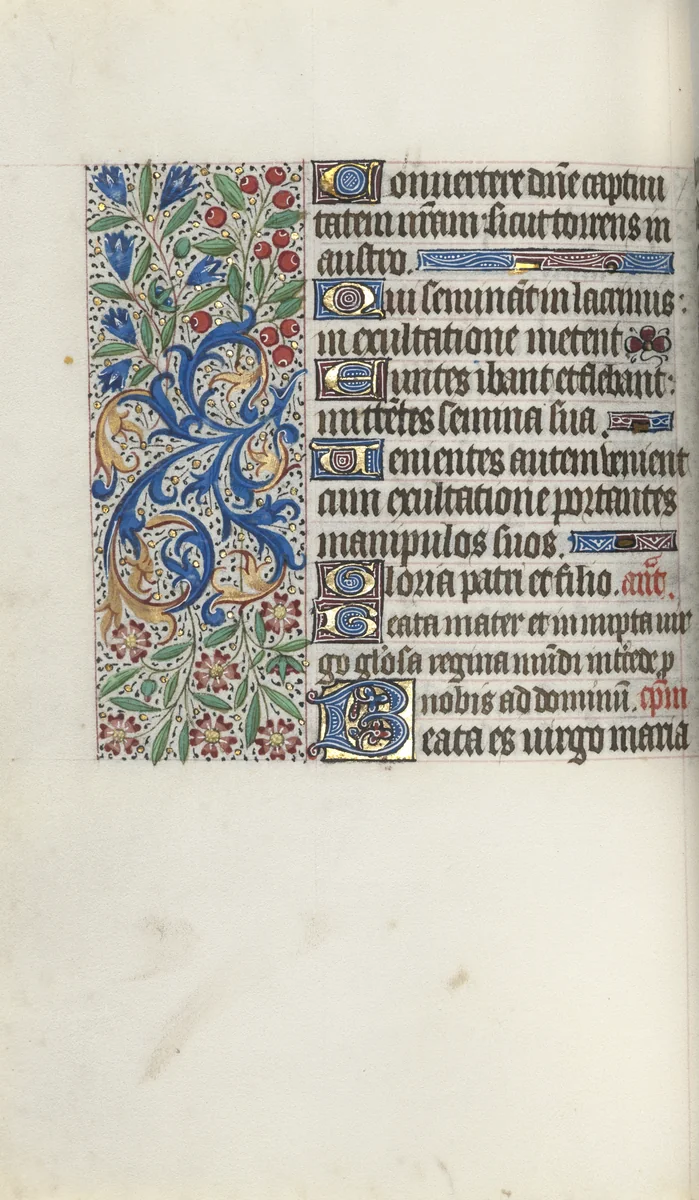 Conuertere dñe captiui
tatem nr̃am: sicut torrens in
austro.
Qui seminãt in lacrimis:
in exultatione metent
Euntes ibant et flebant:
mittẽtes semina sua.
Uenientes autem venient
cum exultatione portantes
manipulos suos.
Gloria patri et filio. ant̃.
Beata mater et in nupta uir
go gl̃osa regina mũdi intẽede ꝓ
nobis ad dominũ. cp̃m
Beata es uirgo maria